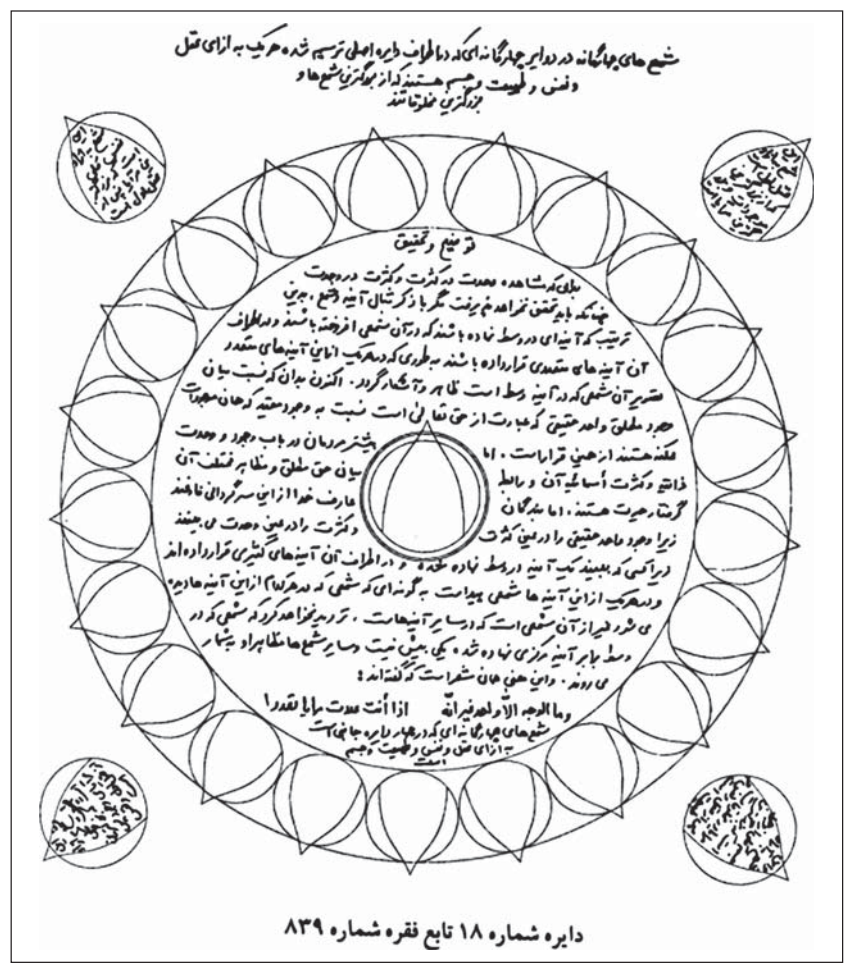 شمع های چهارگانه در دوایر چهارگانه ای که در اطراف دایره اصلی ترسیم شده هر یک به ازای عقل
و نفس و طبیعت و جسم هستند که از بزرگترین شمع ها و
بزرگترین مخلوقاتند
توضیح و تحقیق
بدان که مشاهده وحدت در کثرت و کثرت در وحدت
چنانکه باید تحقق نخواهد پذیرفت مگر با ذکر مثال آینه و شمع، بدین
ترتیب که آینه ای در وسط نهاده باشند که در آن شمعی افروخته باشند و در اطراف
آن آینه های متعددی قرار داده باشند به طوری که در هر یک از این آینه های متعدد
تصویر آن شمعی که در آینه وسط است ظاهر و آشکار گردد. اکنون بدان که نسبت میان
وجود مطلق واحد حقیقی که عبارت از حق تعالی است نسبت به وجود مقید که همان موجودات
ممکنه هستند از همین قرار است. اما بیشتر مردمان در باب وجود و وحدت
ذاتیه و کثرت أسمائیه آن و رابط میان حق مطلق و مظاهر مختلف آن
گرفتار حیرت هستند. اما بندگان عارف خدا از این سرگردانی فارغند
زیرا وجود واحد حقیقی را در عین کثرت و کثرت را در عین وحدت می بینند
زیرا کسی که ببیند یک آینه در وسط نهاده شده و در اطراف آن آینه های کثیری قرار داده اند
و در هر یک از این آینه ها شمعی پیداست به گونه ای که شمعی که در هر کدام از این آینه ها دیده
می شود غیر از آن شمعی است که در سایر آینه هاست. تردید نخواهد کرد که شمعی که در
وسط برابر آینه مرکزی نهاده شده یکی بیش نیست و سایر شمع ها مظاهر او بشمار
می روند. و این معنی همان شعر است که گفته اند:
وما الوجه الاّ واحد غیر انّه اذا أنت عددت مرایا تعددا
شمع های چهارگانه ای که در چهار دایره جانبی است
به ازای عقل و نفس و طبیعت و جسم
است
دایره شماره ۱۸ تابع فقره شماره ۸۳۹